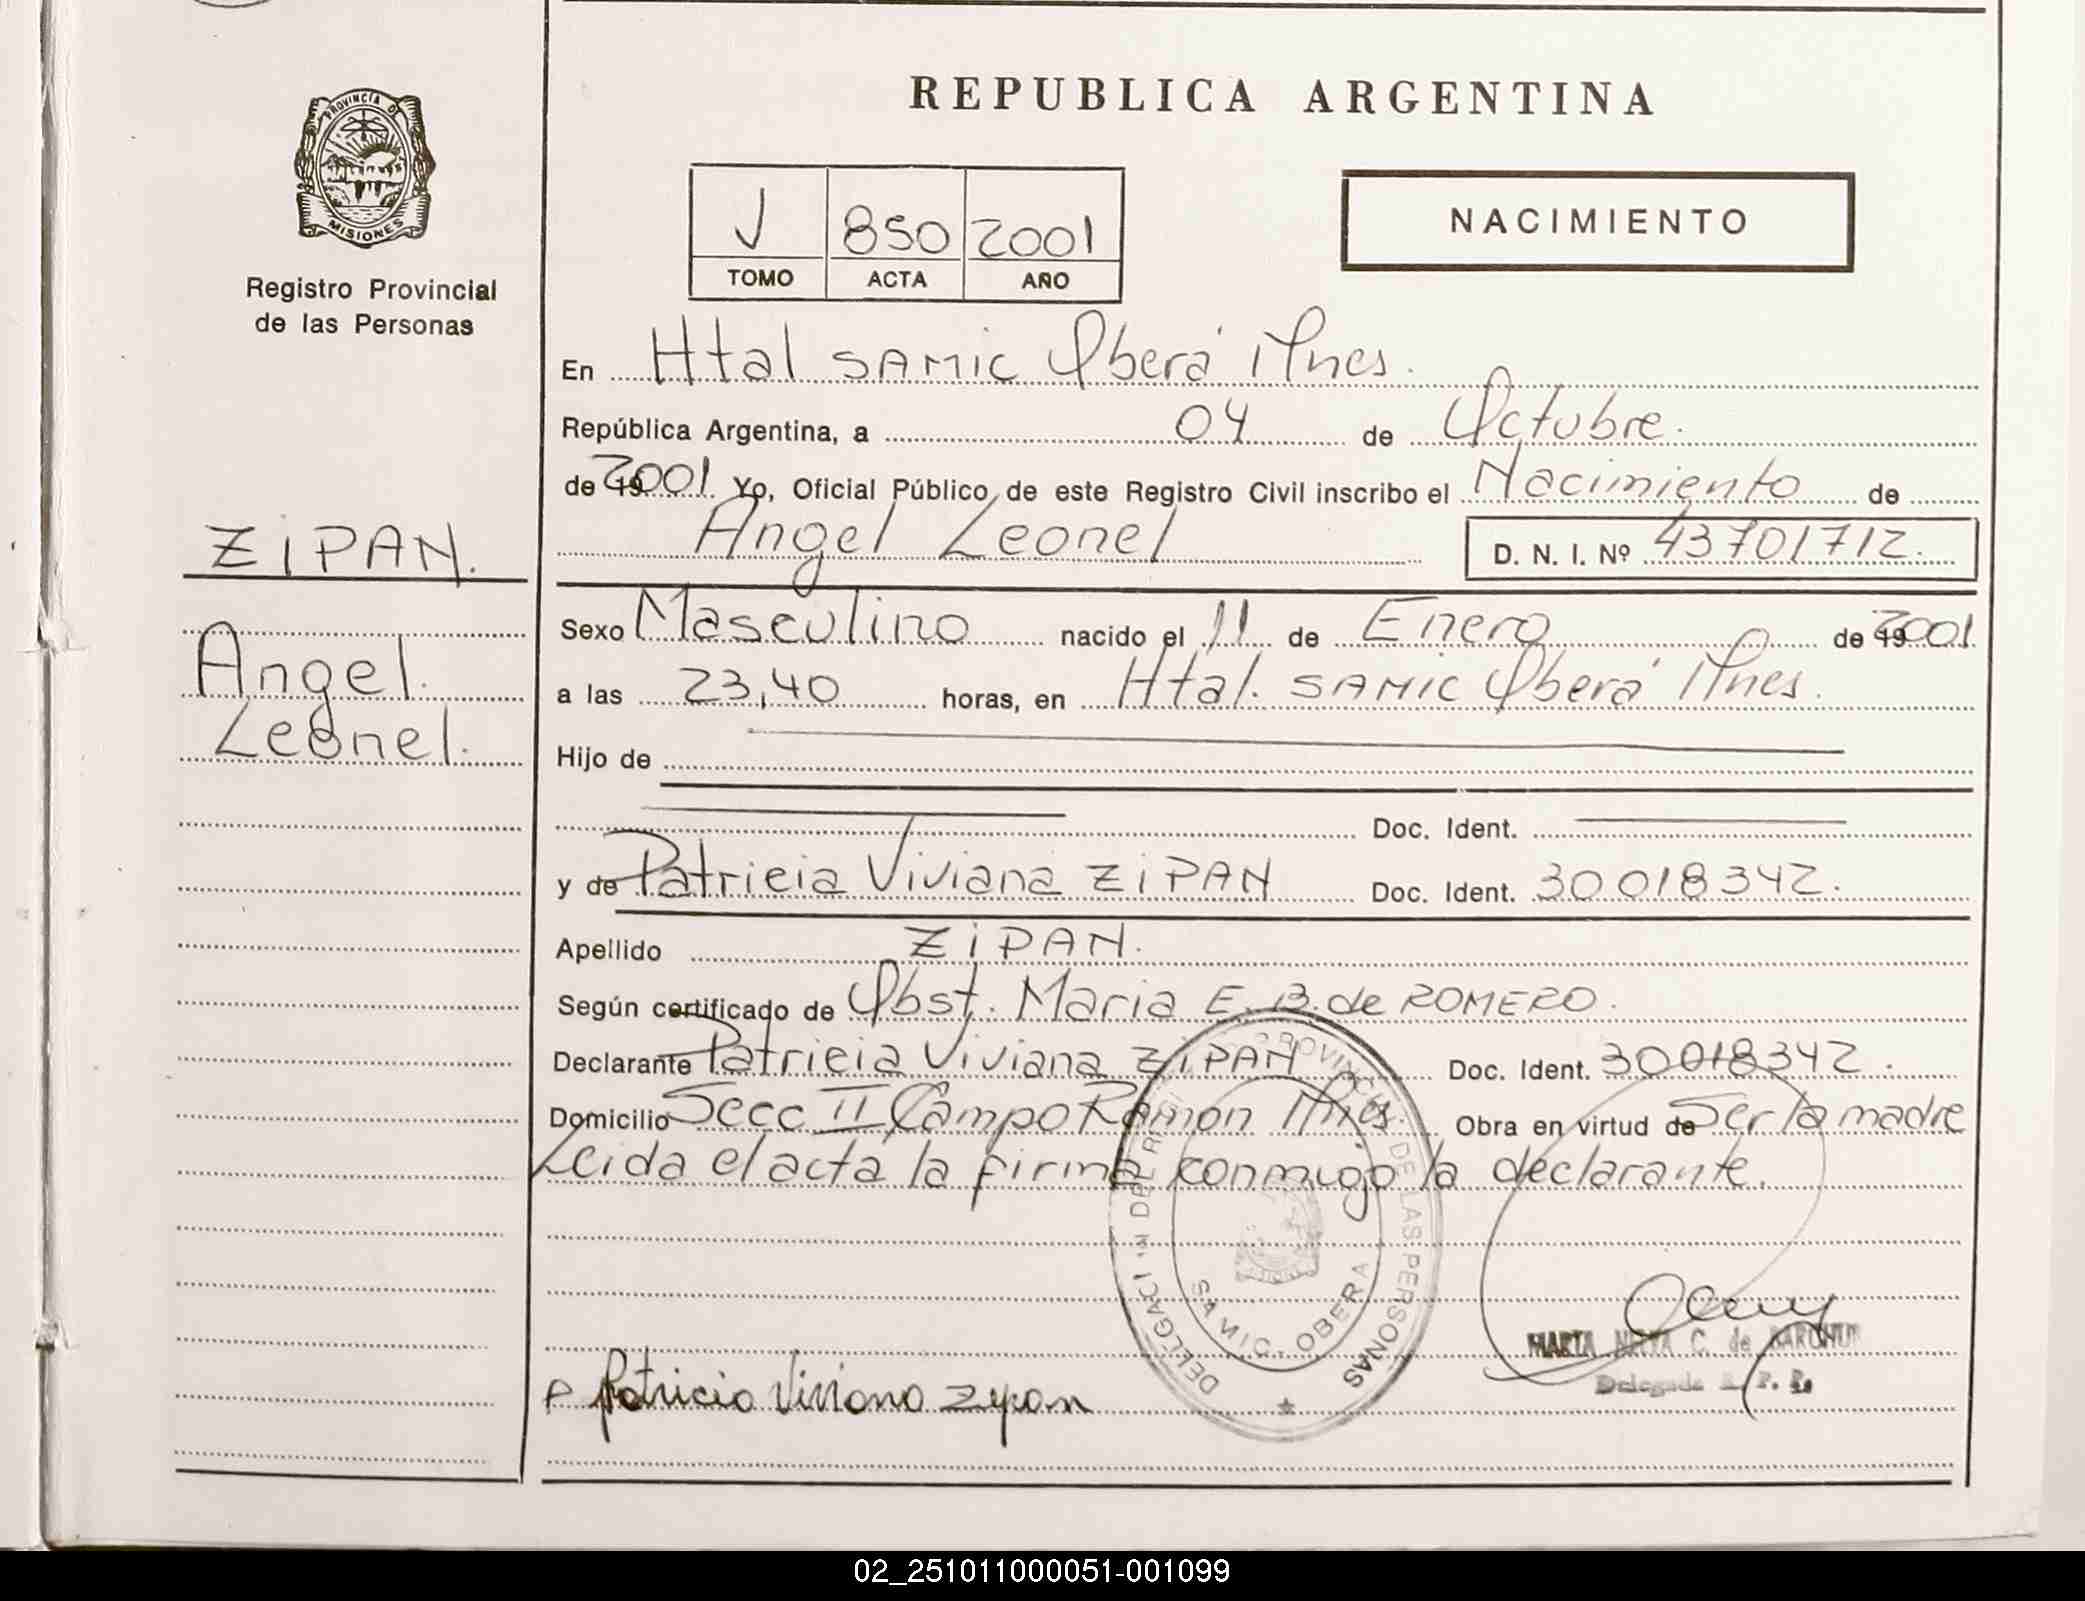 REPUBLICA ARGENTINA
PROVINCIA DE
MISIONES
Registro Provincial
de las Personas
V 850 2001
TOMO ACTA AÑO
NACIMIENTO
En Htal SAMIC Oberá Mnes.
República Argentina, a 04 de Octubre.
de 2001. Yo, Oficial Público, de este Registro Civil inscribo el Nacimiento de
Angel Leonel D. N. I. Nº 43701712.
ZiPAN.
Angel.
Leonel.
Sexo Masculino nacido el 11 de Enero de 2001.
a las 23,40 horas, en Htal. SAMIC Oberá Mnes.
Hijo de
Doc. Ident.
y de Patricia Viviana ZiPAN Doc. Ident. 30018342.
Apellido ZiPAN.
Según certificado de Obst. Maria E. B. de ROMERO.
Declarante Patricia Viviana ZiPAN Doc. Ident. 30018342.
Domicilio Secc II Campo Ramon Mnes. Obra en virtud de Ser la madre
Leida el acta la firma conmigo la declarante.
SAMIC. OBERA
DE LAS PERSONAS
MARTA C. de
Delegada
Patricia Viviana Zipan
02_251011000051-001099